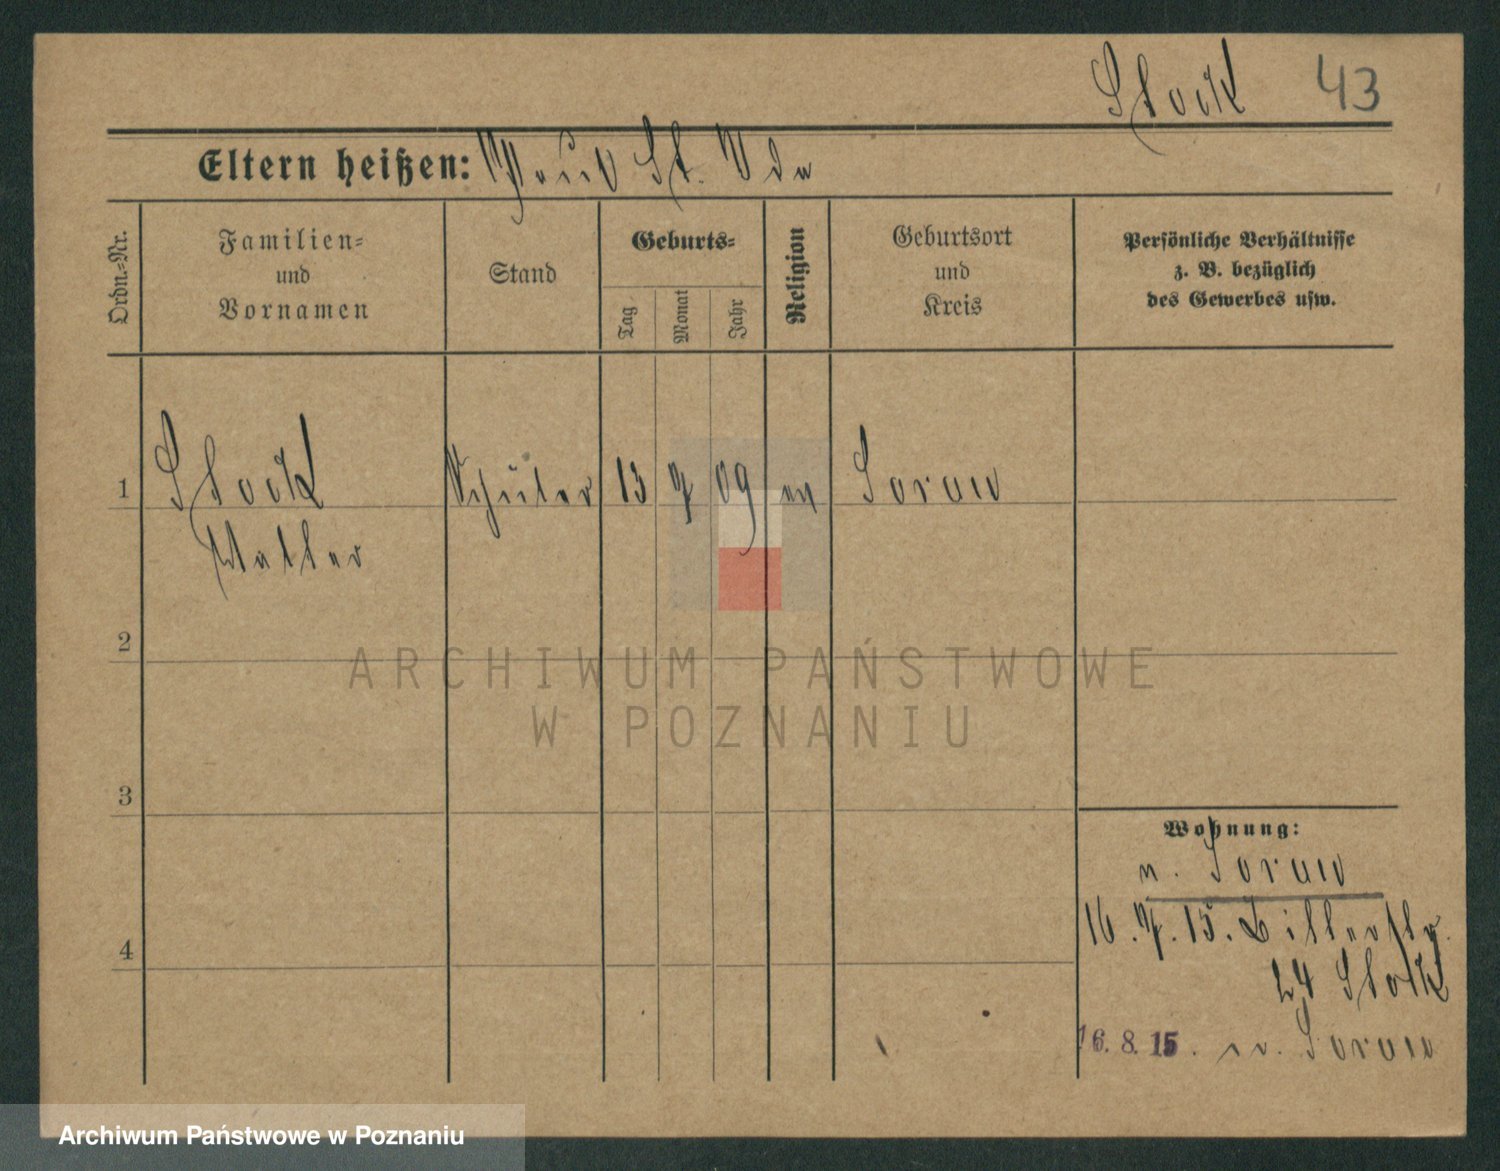 Stock 43
Eltern heißen: St. Ida
Ordn.-Nr.
Familien-
und
Vornamen
Stand
Geburts-
Tag
Monat
Jahr
Religion
Geburtsort
und
Kreis
Persönliche Verhältnisse
z. B. bezüglich
des Gewerbes usw.
1 Stock Schüler 13 7 09 ev Sorau
Walter
2
3
4
ARCHIWUM PAŃSTWOWE
W POZNANIU
Wohnung:
n. Sorau
16.7.15. Bitterstr.
24 Stock
16.8.15. n. Sorau
Archiwum Państwowe w Poznaniu